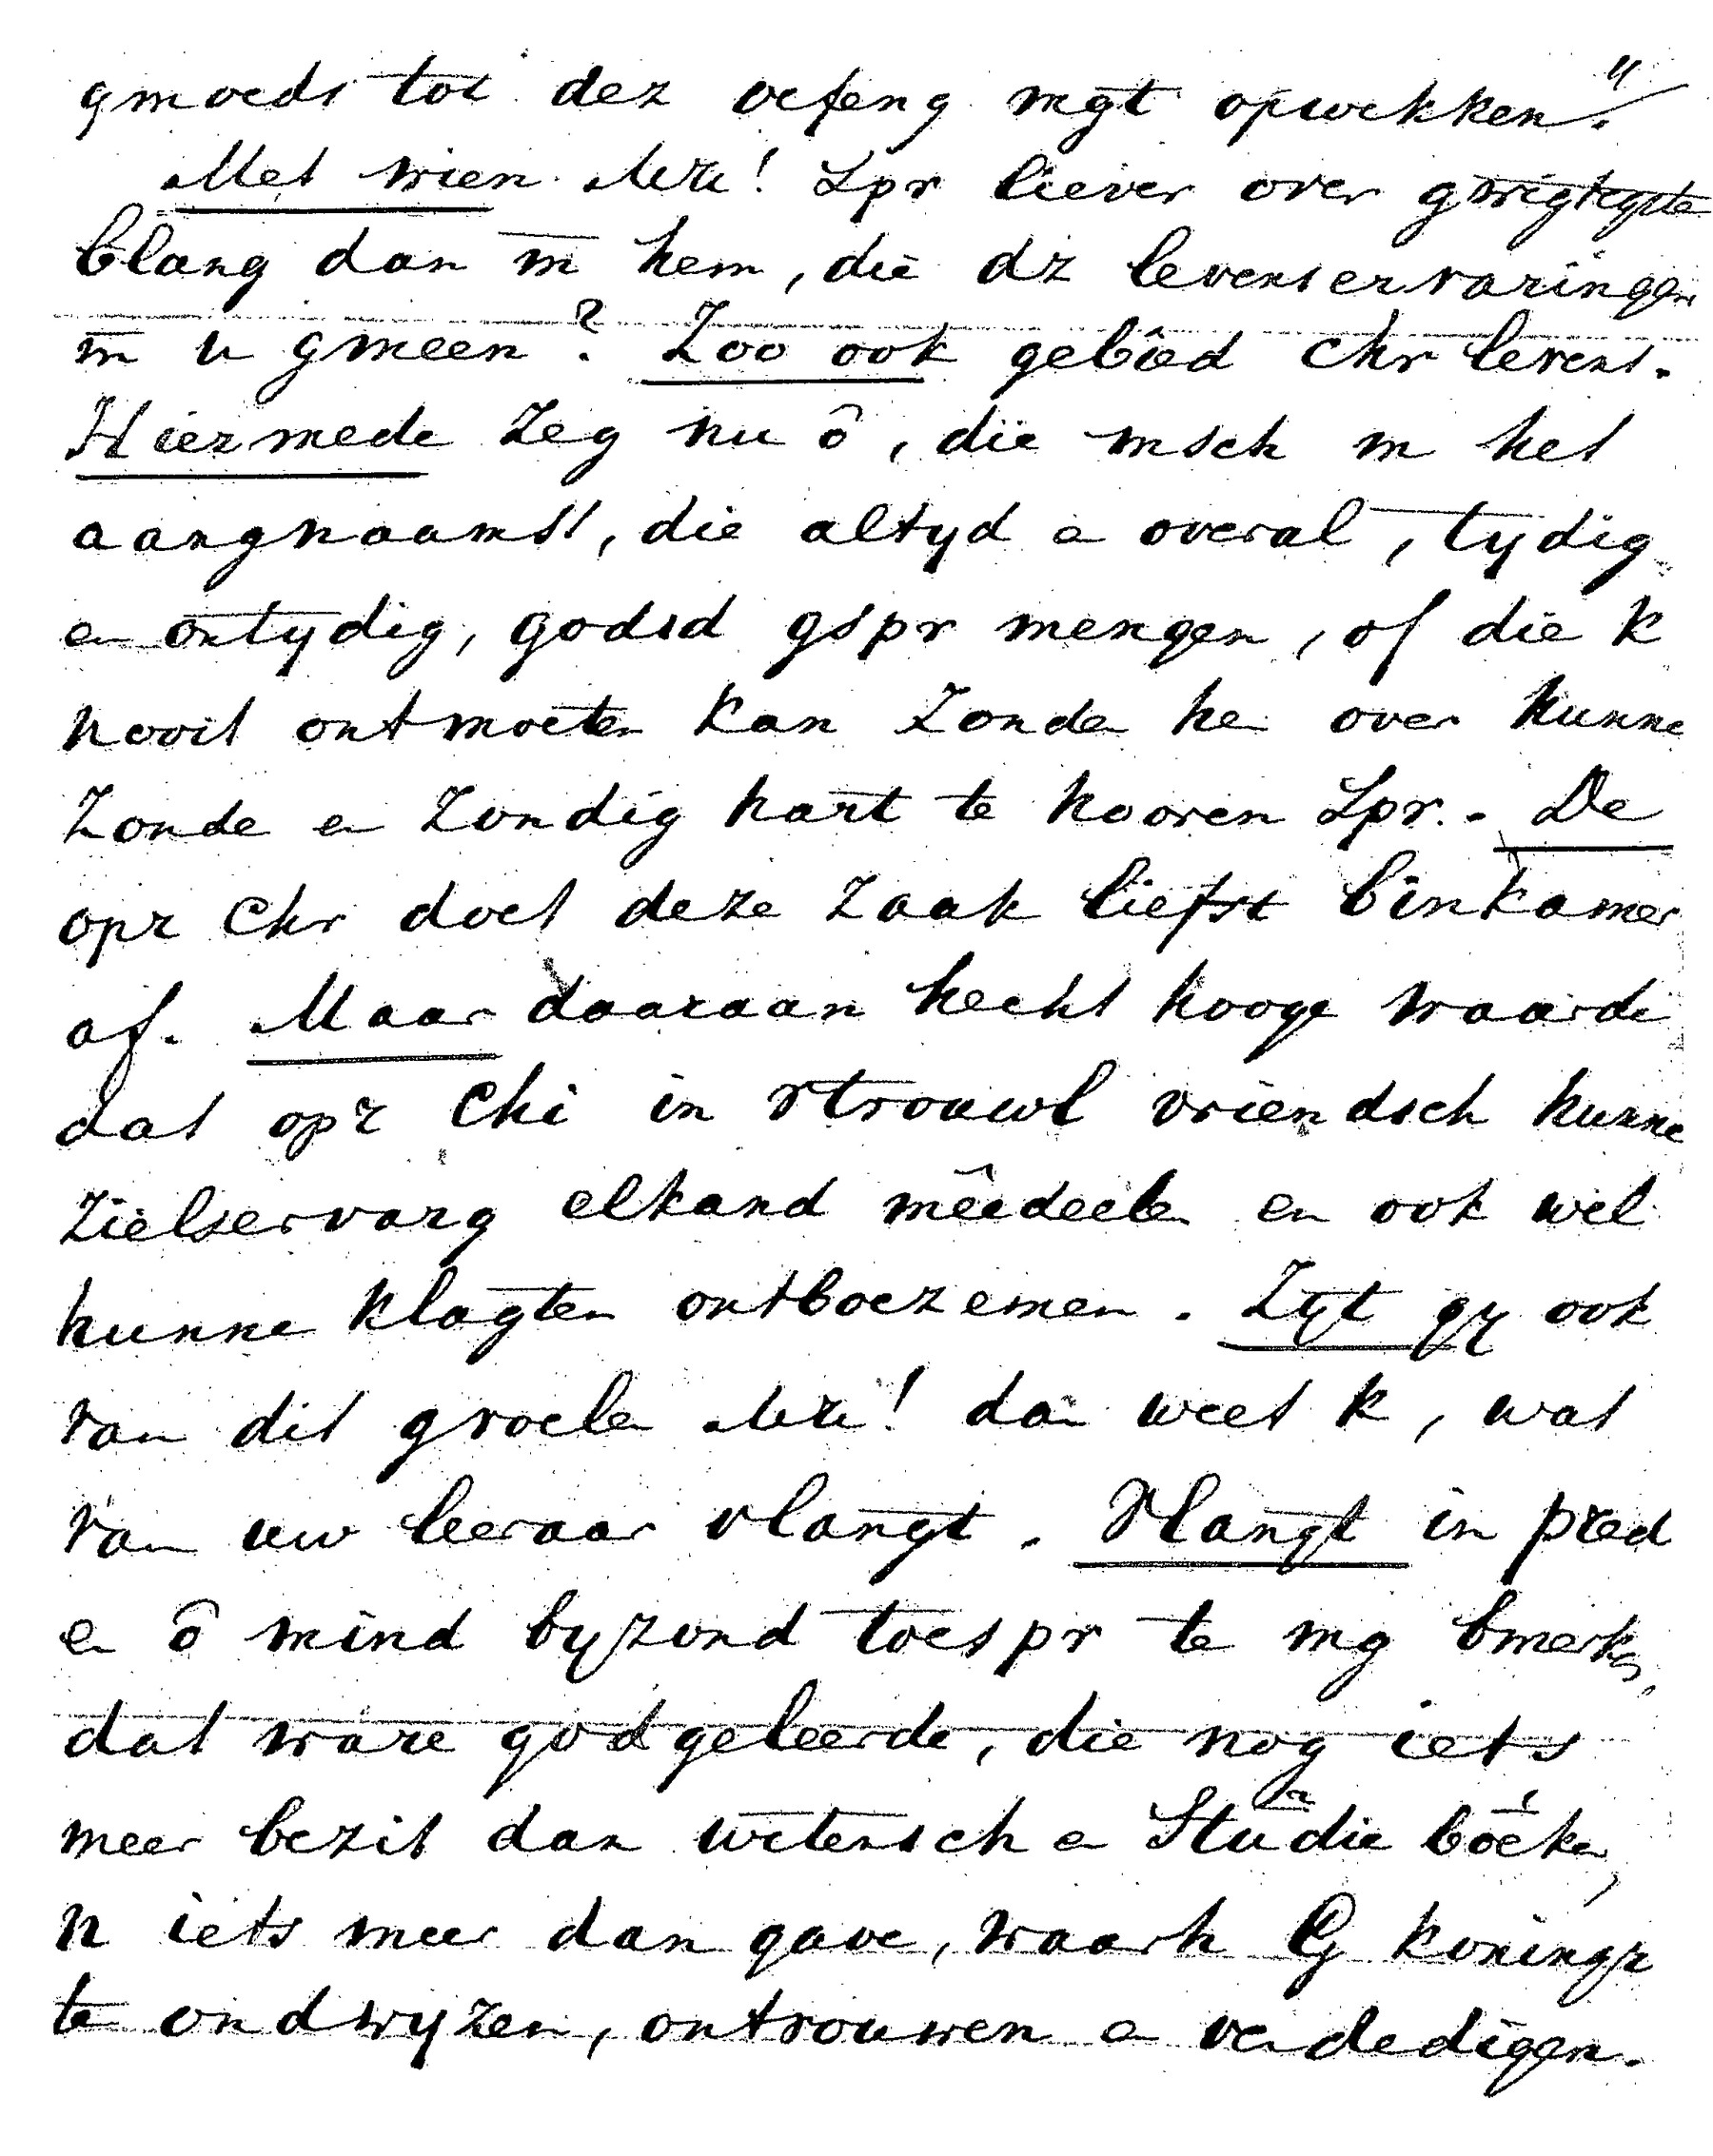 gmoeds tot dez oefeng mgt opwekken."
Met wien Mrn! Spr liever over gwigtigste
blang dan m̅ hem, die dz levenservaringen
m̅ u gmeen? Zoo ook gebied chr levens.
Hiermede zeg nu ô, die msch m het
aangnaamst, die altyd e overal, tydig
en ontydig, godsd gspr mengen, of die k
nooit ontmoeten kan zonder hen over hunne
zonde en zondig hart te hooren spr. De
opr Chr doet deze zaak liefst binkamer
af. Maar daaraan hecht hooge waarde
dat opr Chi in vtrouwl vriendsch hunne
zielservarg elkand mêedeelen en ook wel
hunne klagten ontboezemen. Zyt gy ook
van dit gvoelen Mrn! dan weet k, wat
van uw leeraar vlangt. Vlangt in pred
en ô mind byzond toespr te mg bmerken,
dat ware godgeleerde, die nog iets
meer bezit dan wetensch e Studie boeken,
n iets meer dan gave, waarh G koningr
te ondwyzen, ontvouwen e verdedigen.